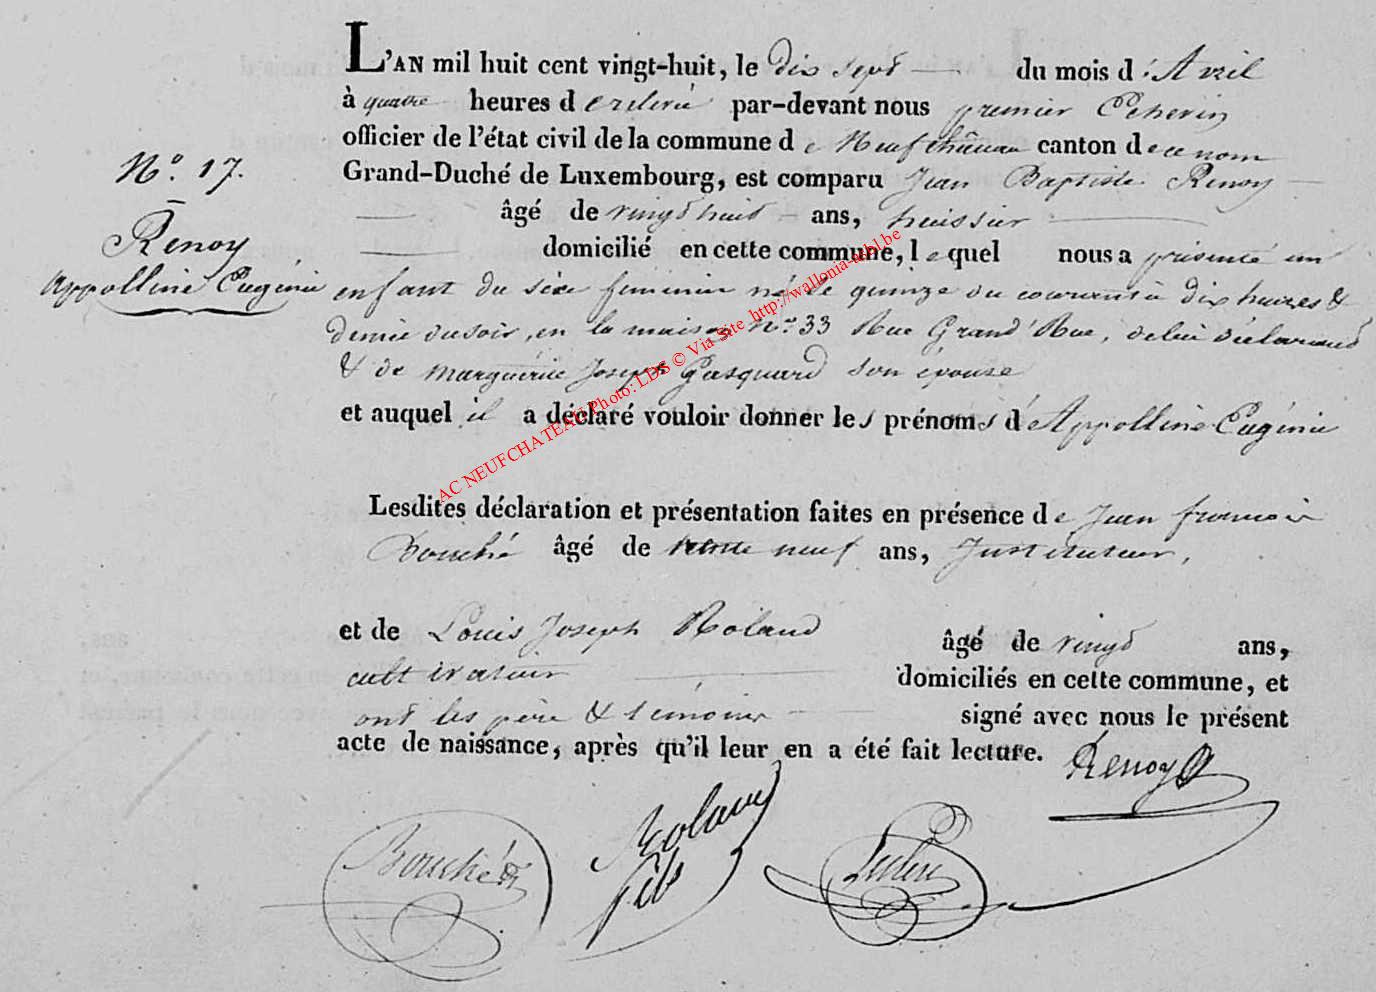 L'AN mil huit cent vingt-huit, le dix sept du mois d'Avril
à quatre heures d e relevée par-devant nous premier Echevin
officier de l'état civil de la commune d e Neufchâteau canton d e ce nom
Grand-Duché de Luxembourg, est comparu Jean Baptiste Renoy
âgé de vingt huit ans, huissier
domicilié en cette commune, l e quel nous a présenté un
enfant du sexe féminin né le quinze du courant à dix heures &
demie du soir, en la maison N.° 33 Rue Grand'Rue, de lui déclarant
& de Marguérite Joseph Gasquard son épouse
et auquel il a déclaré vouloir donner les prénoms d'Appolline Eugénie
N.° 17.
Renoy
Appolline Eugénie
Lesdites déclaration et présentation faites en présence d e Jean François
Bouché âgé de trente neuf ans, Instituteur,
et de Louis Joseph Roland âgé de vingt ans,
cultivateur domiciliés en cette commune, et
ont les père & témoins signé avec nous le présent
acte de naissance, après qu'il leur en a été fait lecture.
Renoy
Bouché
Roland
fils
AC NEUFCHATEAU Photo: LDS © Via Site http://wallonia-asbl.be